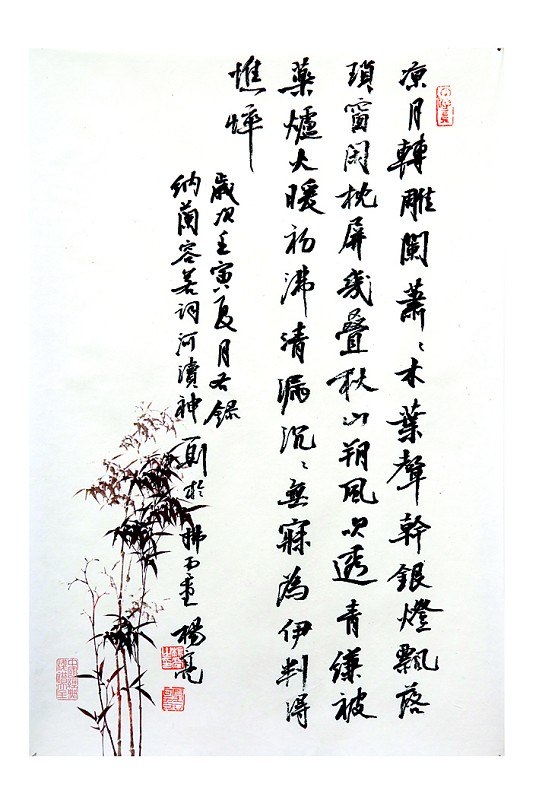 凉月轉雕闌蕭〻木葉聲幹銀燈飄落
瑣窗閑枕屏幾疊秋山朔風吹透青縑被
藥爐火暖初沸清漏沉〻無寐為伊判得
憔悴
歲次壬寅夏月書錄
納蘭容若詞河瀆神 於 楊亮